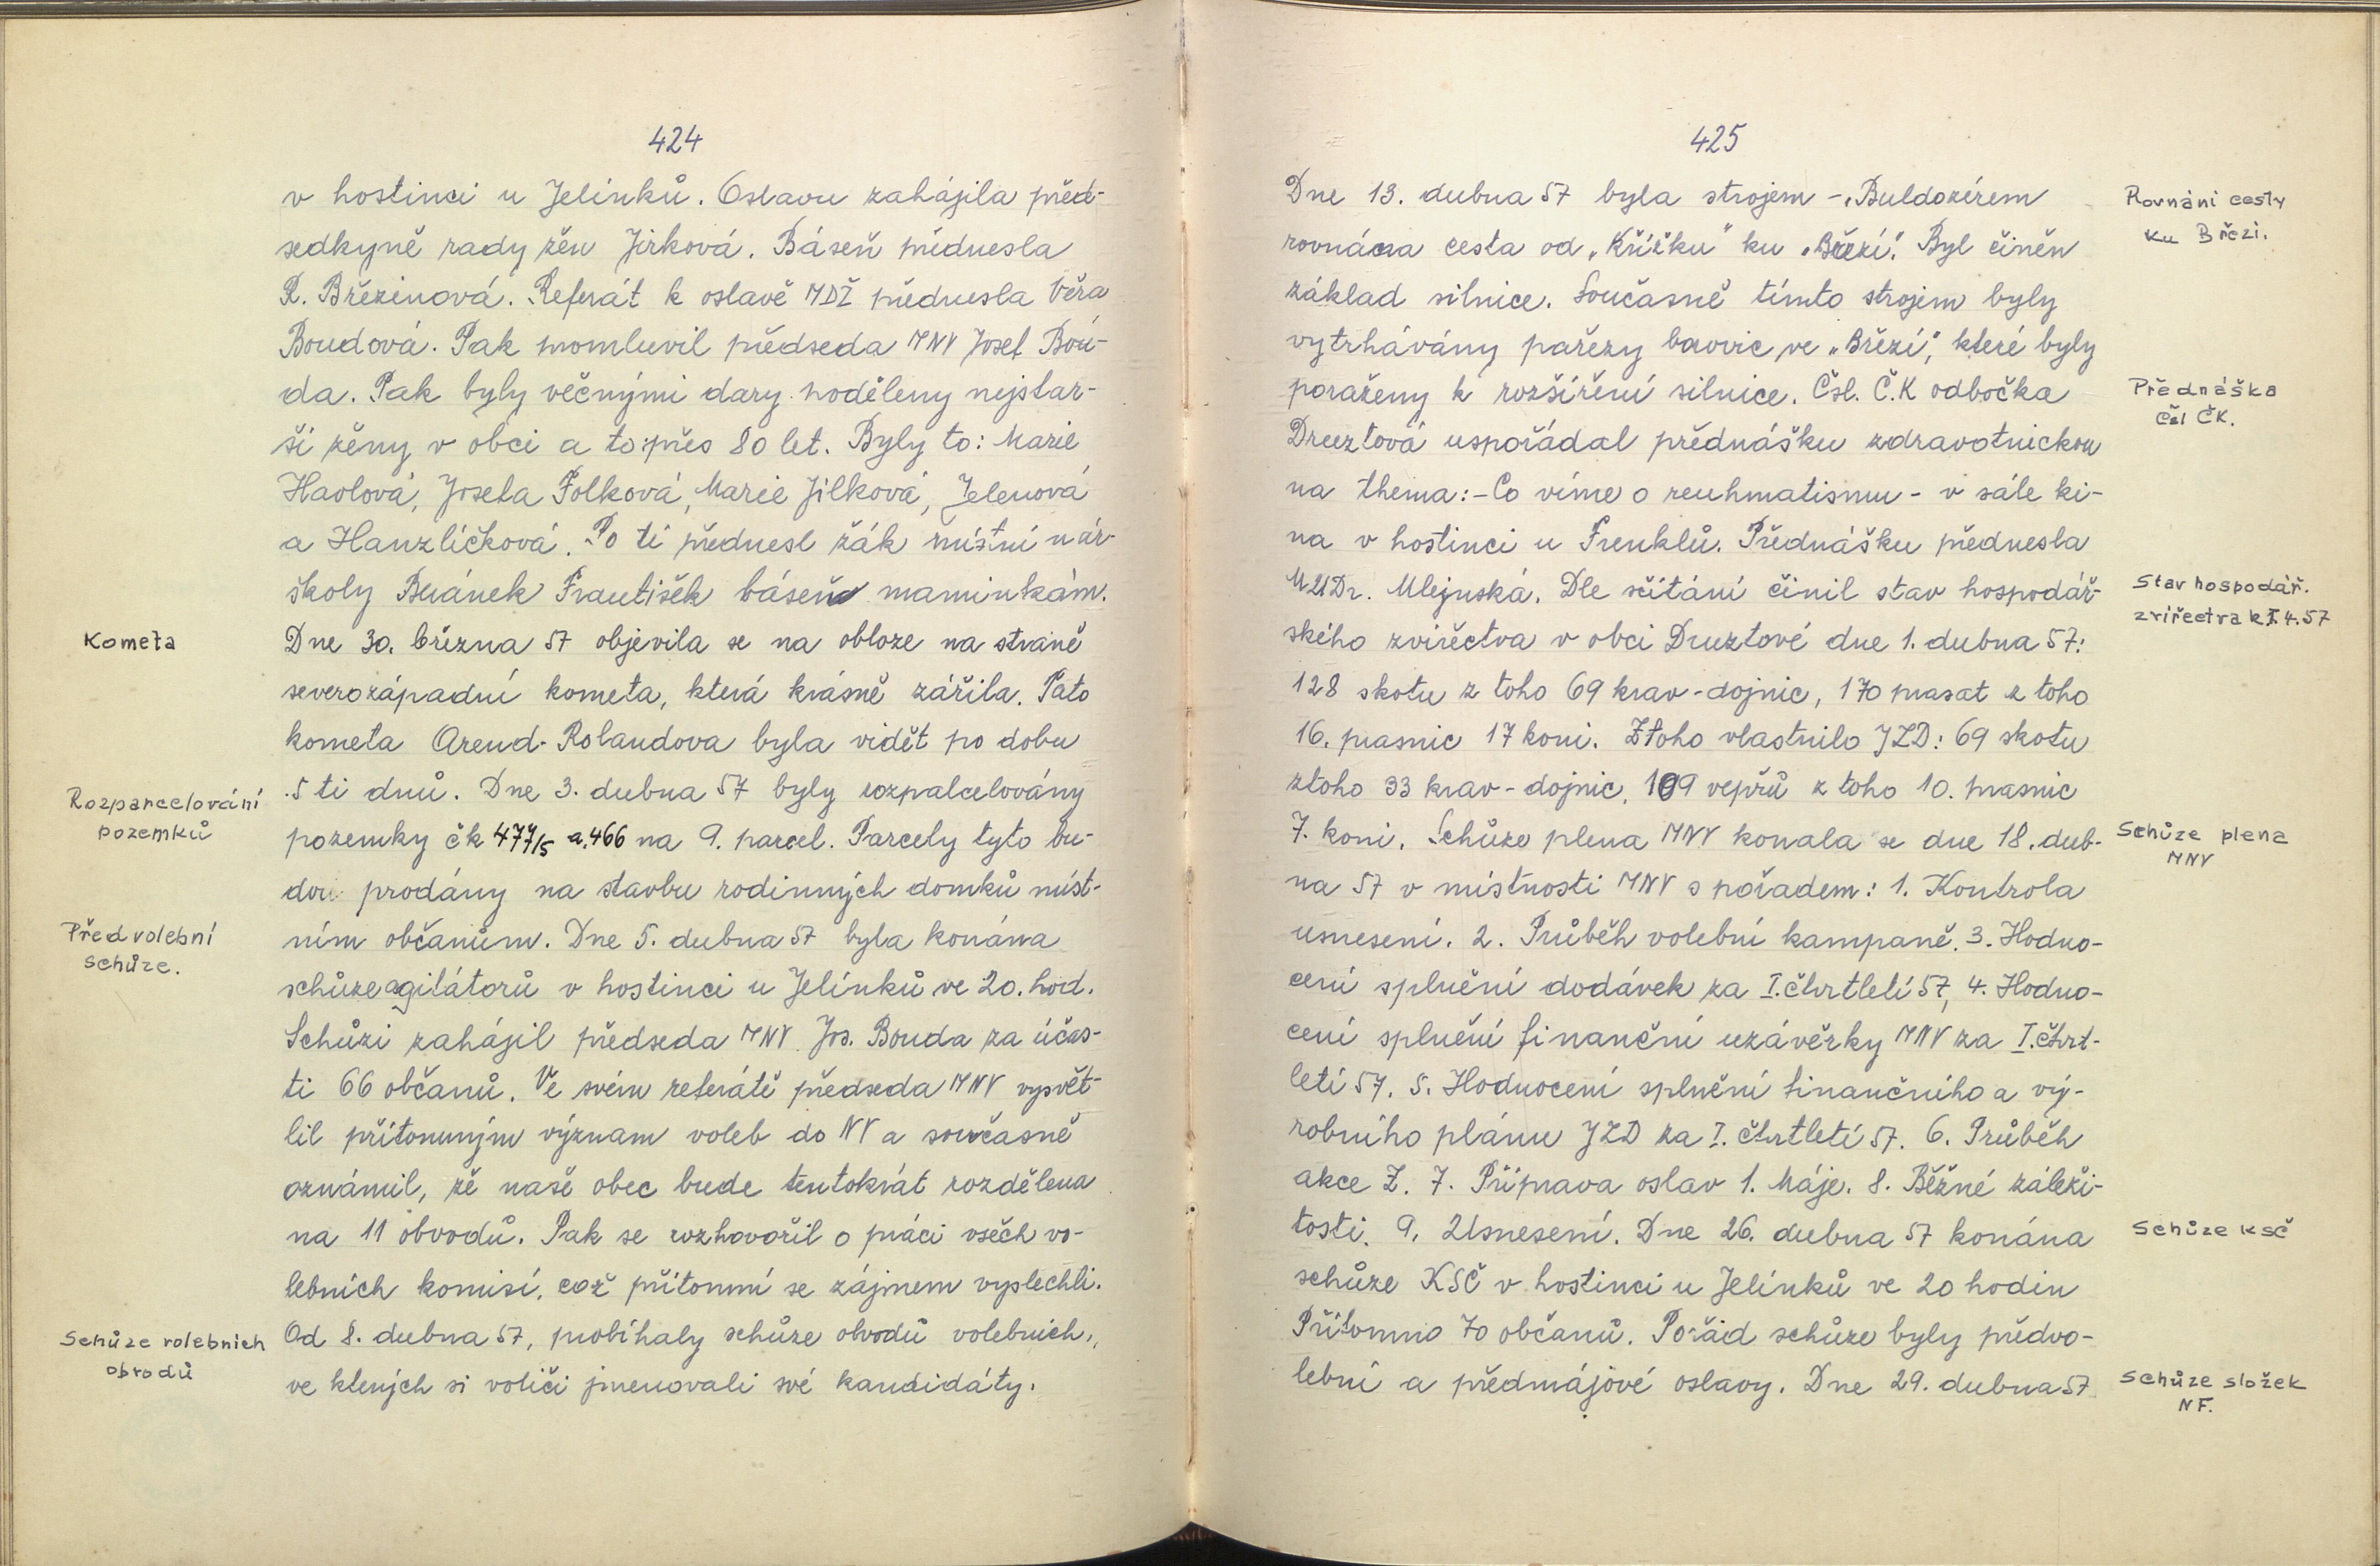 424
v hostinci u Jelínků. Oslavu zahájila před-
sedkyně rady žen Jirková. Báseň přednesla
R. Březinová. Referát k oslavě MDŽ přednesla Věra
Boudová. Pak promluvil předseda MNV Josef Bou-
da. Pak byly věčnými dary poděleny nejstar-
ší ženy v obci a to: přes 80 let. Byly to: Marie
Haolová, Josefa Folková, Marie Jílková, Jelenová
a Hanzlíčková. Po té přednesl žák místní nár.
školy František báseň maminkám.
Kometa
Dne 30. března 57 objevila se na obloze na straně
severozápadní kometa, která krásně zářila. Tato
kometa Arend-Rolandova byla vidět po dobu
5 ti dnů. Dne 3. dubna 57 byly rozpalcelovány
Rozparcelování
pozemků
pozemky čk 477/5 a 466 na 9. parcel. Parcely tyto bu-
dou prodány na stavbu rodinných domků míst-
Předvolební
schůze.
ním občanům. Dne 5. dubna 57 byla konána
schůze agitátorů v hostinci u Jelínků ve 20. hod.
Schůzi zahájil předseda MNV Jos. Bouda za účas-
ti 66 občanů. Ve svém referátě předseda MNV vysvět-
lil přítomným význam voleb do NV a současně
oznámil, že naše obec bude tentokrát rozdělena
na 11 obvodů. Pak se rozhovořil o práci všech vo-
lebních komisí, což přítomní se zájmem vyslechli.
Schůze volebních
obvodů
Od 8. dubna 57, probíhaly schůze obvodů volebních,
ve kterých si voliči jmenovali své kandidáty.
425
Dne 13. dubna 57 byla strojem - „Buldozérem
Rovnání cesty
ku Březí.
rovnána cesta od „Křížku" ku „Březí". Byl činěn
základ silnice. Současně tímto strojem byly
vytrhávány pařezy borovic ve „Březí", které byly
poraženy k rozšíření silnice. Čsl. Č.K odbočka
Přednáška
Čsl ČK.
Druztová uspořádal přednášku zdravotnickou
na thema: - Co víme o reuhmatismu - v sále ki-
na v hostinci u Frenklů. Přednášku přednesla
MUDr. Mlejnská. Dle sčítání činil stav hospodář-
Stav hospodář.
zvířectva k 1.4.57
ského zvířectva v obci Druztové dne 1. dubna 57:
128 skotu z toho 69 krav-dojnic, 170 prasat z toho
16. prasnic 17 koni. Z toho vlastnilo JZD: 69 skotu
ztoho 33 krav-dojnic, 109 vepřů z toho 10. prasnic
7. koni. Schůze plena MNV konala se dne 18. dub-
Schůze plena
MNV
na 57 v místnosti MNV s pořadem: 1. Kontrola
usnesení. 2. Průběh volební kampaně. 3. Hodno-
cení splnění dodávek za I. čtvrtletí 57, 4. Hodno-
cení splnění finanční uzávěrky MNV za I. čtvrt-
letí 57. 5. Hodnocení splnění finančního a vý-
robního plánu JZD za I. čtvrtletí 57. 6. Průběh
akce Z. 7. Příprava oslav 1. Máje. 8. Běžné záleži-
tosti. 9. Usnesení. Dne 26. dubna 57 konána
Schůze KSČ
schůze KSČ v hostinci u Jelínků ve 20 hodin
Přítomno 70 občanů. Pořad schůze byly předvo-
lební a předmájové oslavy. Dne 29. dubna 57
Schůze složek
NF.